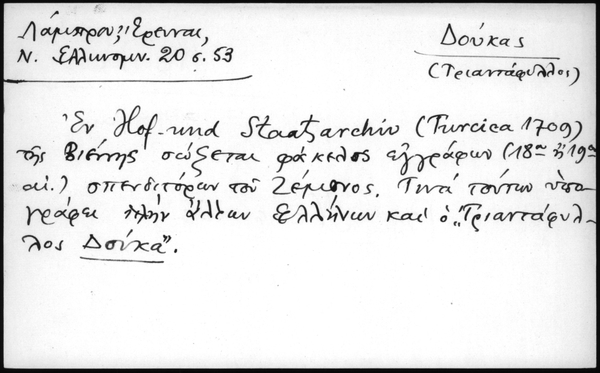 Λάμπρου, Ἔρευναι,
Ν. Ἑλληνομν. 20 σ. 53
Δούκας
(Τριαντάφυλλος)
Ἐν Hof- und Staatsarchiv (Turcica 1709)
τῆς Βιέννης σώζεται φάκελος ἐγγράφων (18ου ἢ 19ου
αἰ.) σπενδιτόρων τοῦ Ζέμονος. Τινὰ τούτων ὑπο
γράφει πλὴν ἄλλων Ἑλλήνων καὶ ὁ „Τριαντάφυλ-
λος Δούκα".